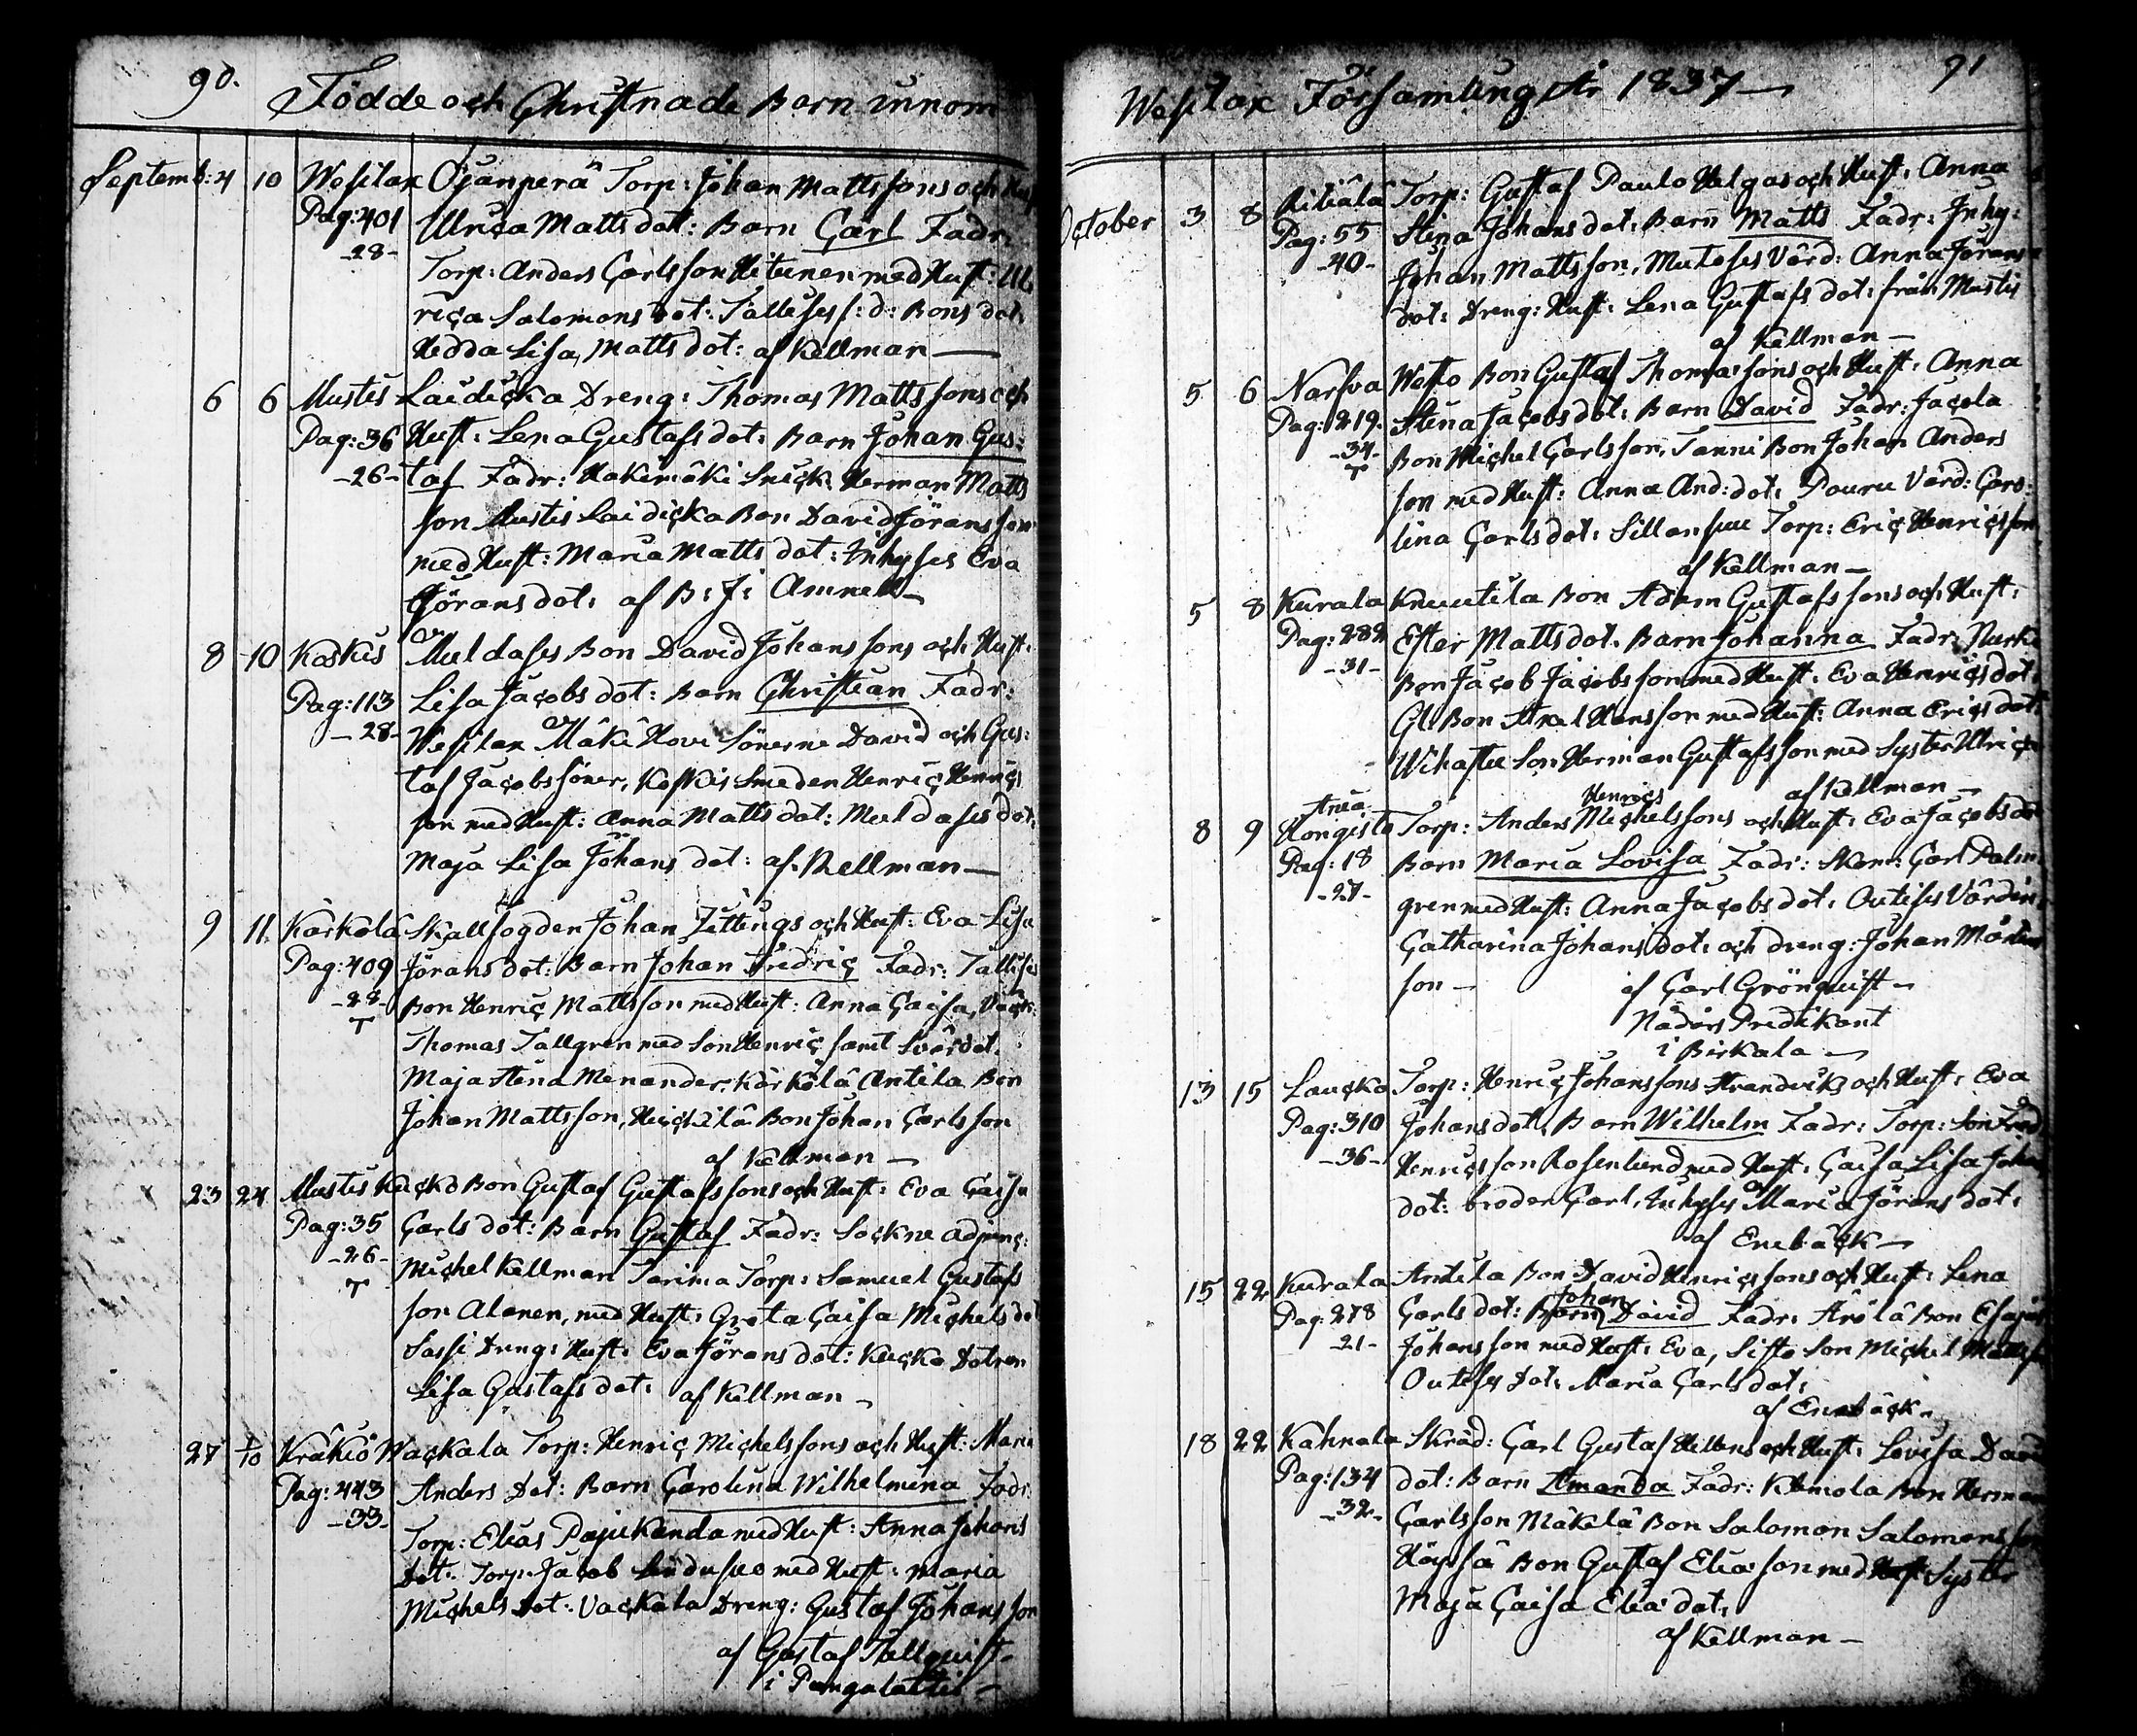 90.
Födde och Christnade Barn innom
Septemb: 4 10 Wesilax Ojanperä Torp: Johan Mattssons och Hust
Pag: 401 Ulrica Matts dot: Barn Carl Fadr:
-28- Torp: Anders Carlsson med Hust: Ul
rica Salomons dot: Talleses s: d: Bons dot:
Hedda Lisa Matts dot: af Kellman —
6 6 Mustis Laidicka Dreng: Thomas Mattssons och
Pag: 36 Hust: Lena Gustafs dot: Barn Johan Gus:
-26- taf Fadr: Hakimäki Snick: Herman Matts
son Mustis Laidicka Bon David Göransson
med Hust: Maria Matts dot: Inhyses Eva
Görans dot: af B: J: Amnell —
8 10 Koskis Muldases Bon David Johanssons och Hust:
Pag: 113 Lisa Jacobs dot: Barn Christian Fadr:
-28- Wesilax Mäki Hovi Sönerne David och Gus:
taf Jacobs söner, Koskis Smeden Henric Henrics
son med Hust: Anna Matts dot: Muldases dot:
Maja Lisa Johans dot: af Kellman —
9 11. Kärkölä Skallfogden Johan Zittings och Hust: Eva Lisa
Pag: 409 Jörans dot: Barn Johan Fredric Fadr: Talleses
-28- Bon Henric Mattsson med Hust: Anna Caisa,
T Thomas Tallgren med Son Henric samt Svär dot:
Maja Stina Menander, Kärkölä Antila Bon
Johan Mattsson, Heickilä Bon Johan Carlsson
af Kellman —
23 24 Mustis Kucko Bon Gustaf Gustafssons och Hust: Eva Caisa
Pag: 35 Carls dot: Barn Gustaf Fadr: Sockne adjunc:
-26- Michel Kellman Tarima Torp: Samuel Gustafs
T son Alanen, med Hust: Greta Caisa Michels dot
Sassi Dreng: Hust: Eva Görans dot: Kucko Dotren
Lisa Gustafs dot: af Kellman —
27 1/10 Kräkiö Wackala Torp: Henric Michelssons och Hust: Maria
Pag: 443 Anders Dot: Barn Carolina Wilhelmina Fadr:
-33- Torp: Elias Pajukanda med Hust: Anna Johans
Dot: Torp: Jacob med Hust: Maria
Michels Dot: Vackala Dreng: Gustaf Johansson
af Gustaf Tallquist
i Pungalaitis —
91
Wesilax Församling År 1837 —
October 3 8 Ritiälä Torp: Gustaf Paulo Helgas och Hust: Anna
Pag: 55 Stina Johans dot: Barn Matts Fadr: Inhy:
-40- Johan Mattsson, Muteses Värd: Anna Jörans
dot: Dreng: Hust: Lena Gustafs dot: från Mustis
af Kellman —
5 6 Narfva Wesso Bon Gustaf Thomassons och Hust: Anna
Pag: 219. Stina Jacobs dot: Barn David Fadr: Jacola
-34- Bon Michel Carlsson, Tanni Bon Johan Anders
T son med Hust: Anna And: dot: Pouru Värd: Caro:
lina Carls dot: Sillansuu Torp: Eric Henricsson
af Kellman —
5 8 Kurala Knuutila Bon Adam Gustafssons och Hust:
Pag: 282 Ester Matts dot: Barn Johanna Fadr:
-31- Bon Jacob Jacobsson med Hust: Eva Henrics dot:
Gl: Bon Axel Hansson med Hust: Anna Erics dot:
Wihattu Son Herman Gustafsson med Syster Ulrica
af Kellman —
8 9 Ania Kongisto Torp: Anders Henrics Michelssons och Hust: Eva Jacobs dot
Pag: 18 Barn Maria Lovisa Fadr: Skom: Carl Palm
-27- gren med Hust: Anna Jacobs dot: Outises Värdin
Catharina Johans dot: och dreng: Johan Mårtens
son — af Carl Grönquist —
Nådårs Predikant
i Birkala —
13 15 Laucko Torp: Henric Johanssons Strandviks och Hust: Eva
Pag: 310 Johans dot: Barn Wilhelm Fadr: Torp: Son Fred
-36- Henricsson Rosenlund med Hust: Caisa Lisa Johans
dot: broder Carl, Inhyses Maria Jörans dot:
af Enebäck —
15 22 Kurala Antila Bon David Henricssons och Hust: Lena
Pag: 278 Carls dot: Barn Johan David Fadr: Ärölä Bon Esajas
21- Johansson med Hust: Eva, Sifto Son Michel Mattss
Outises Dot: Maria Carls dot:
af Enebäck —
18 22 Kahnala Skräd: Carl Gustaf Hellens och Hust: Lovisa Davids
Pag: 134 dot: Barn Amanda Fadr: Klemola Bon Herman
-32- Carlsson Mäkelä Bon Salomon Salomonsson
Höyssä Bon Gustaf Eliasson med Hust Syster
Maja Caisa Elias dot:
af Kellman —